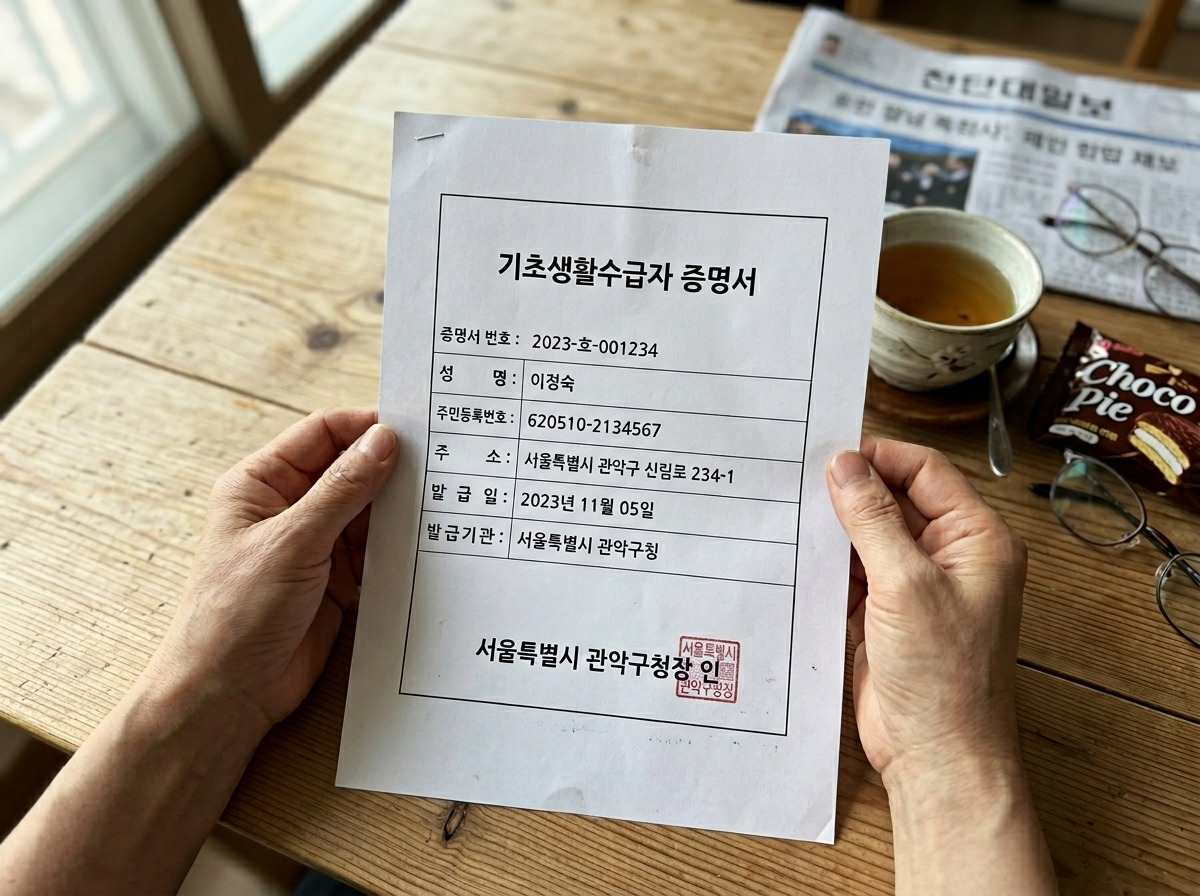 기초생활수급자 증명서
증명서 번호 : 2023-흐-001234
성 명 : 이정숙
주민등록번호 : 620510-2134567
주 소 : 서울특별시 관악구 신림로 234-1
발 급 일 : 2023년 11월 05일
발급기관 : 서울특별시 관악구칭
서울특별시 관악구청장 인
서울특별시
Choco
Pie